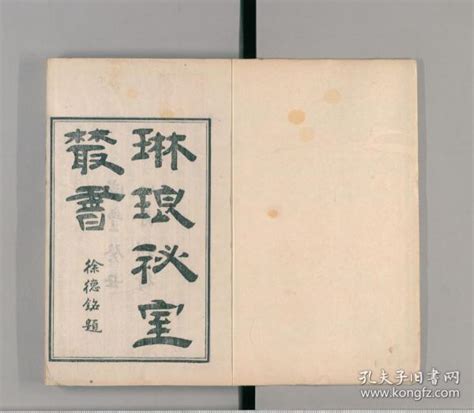 琳琅祕室
叢書
徐德銘題
孔夫子旧书网
www.kongfz.com